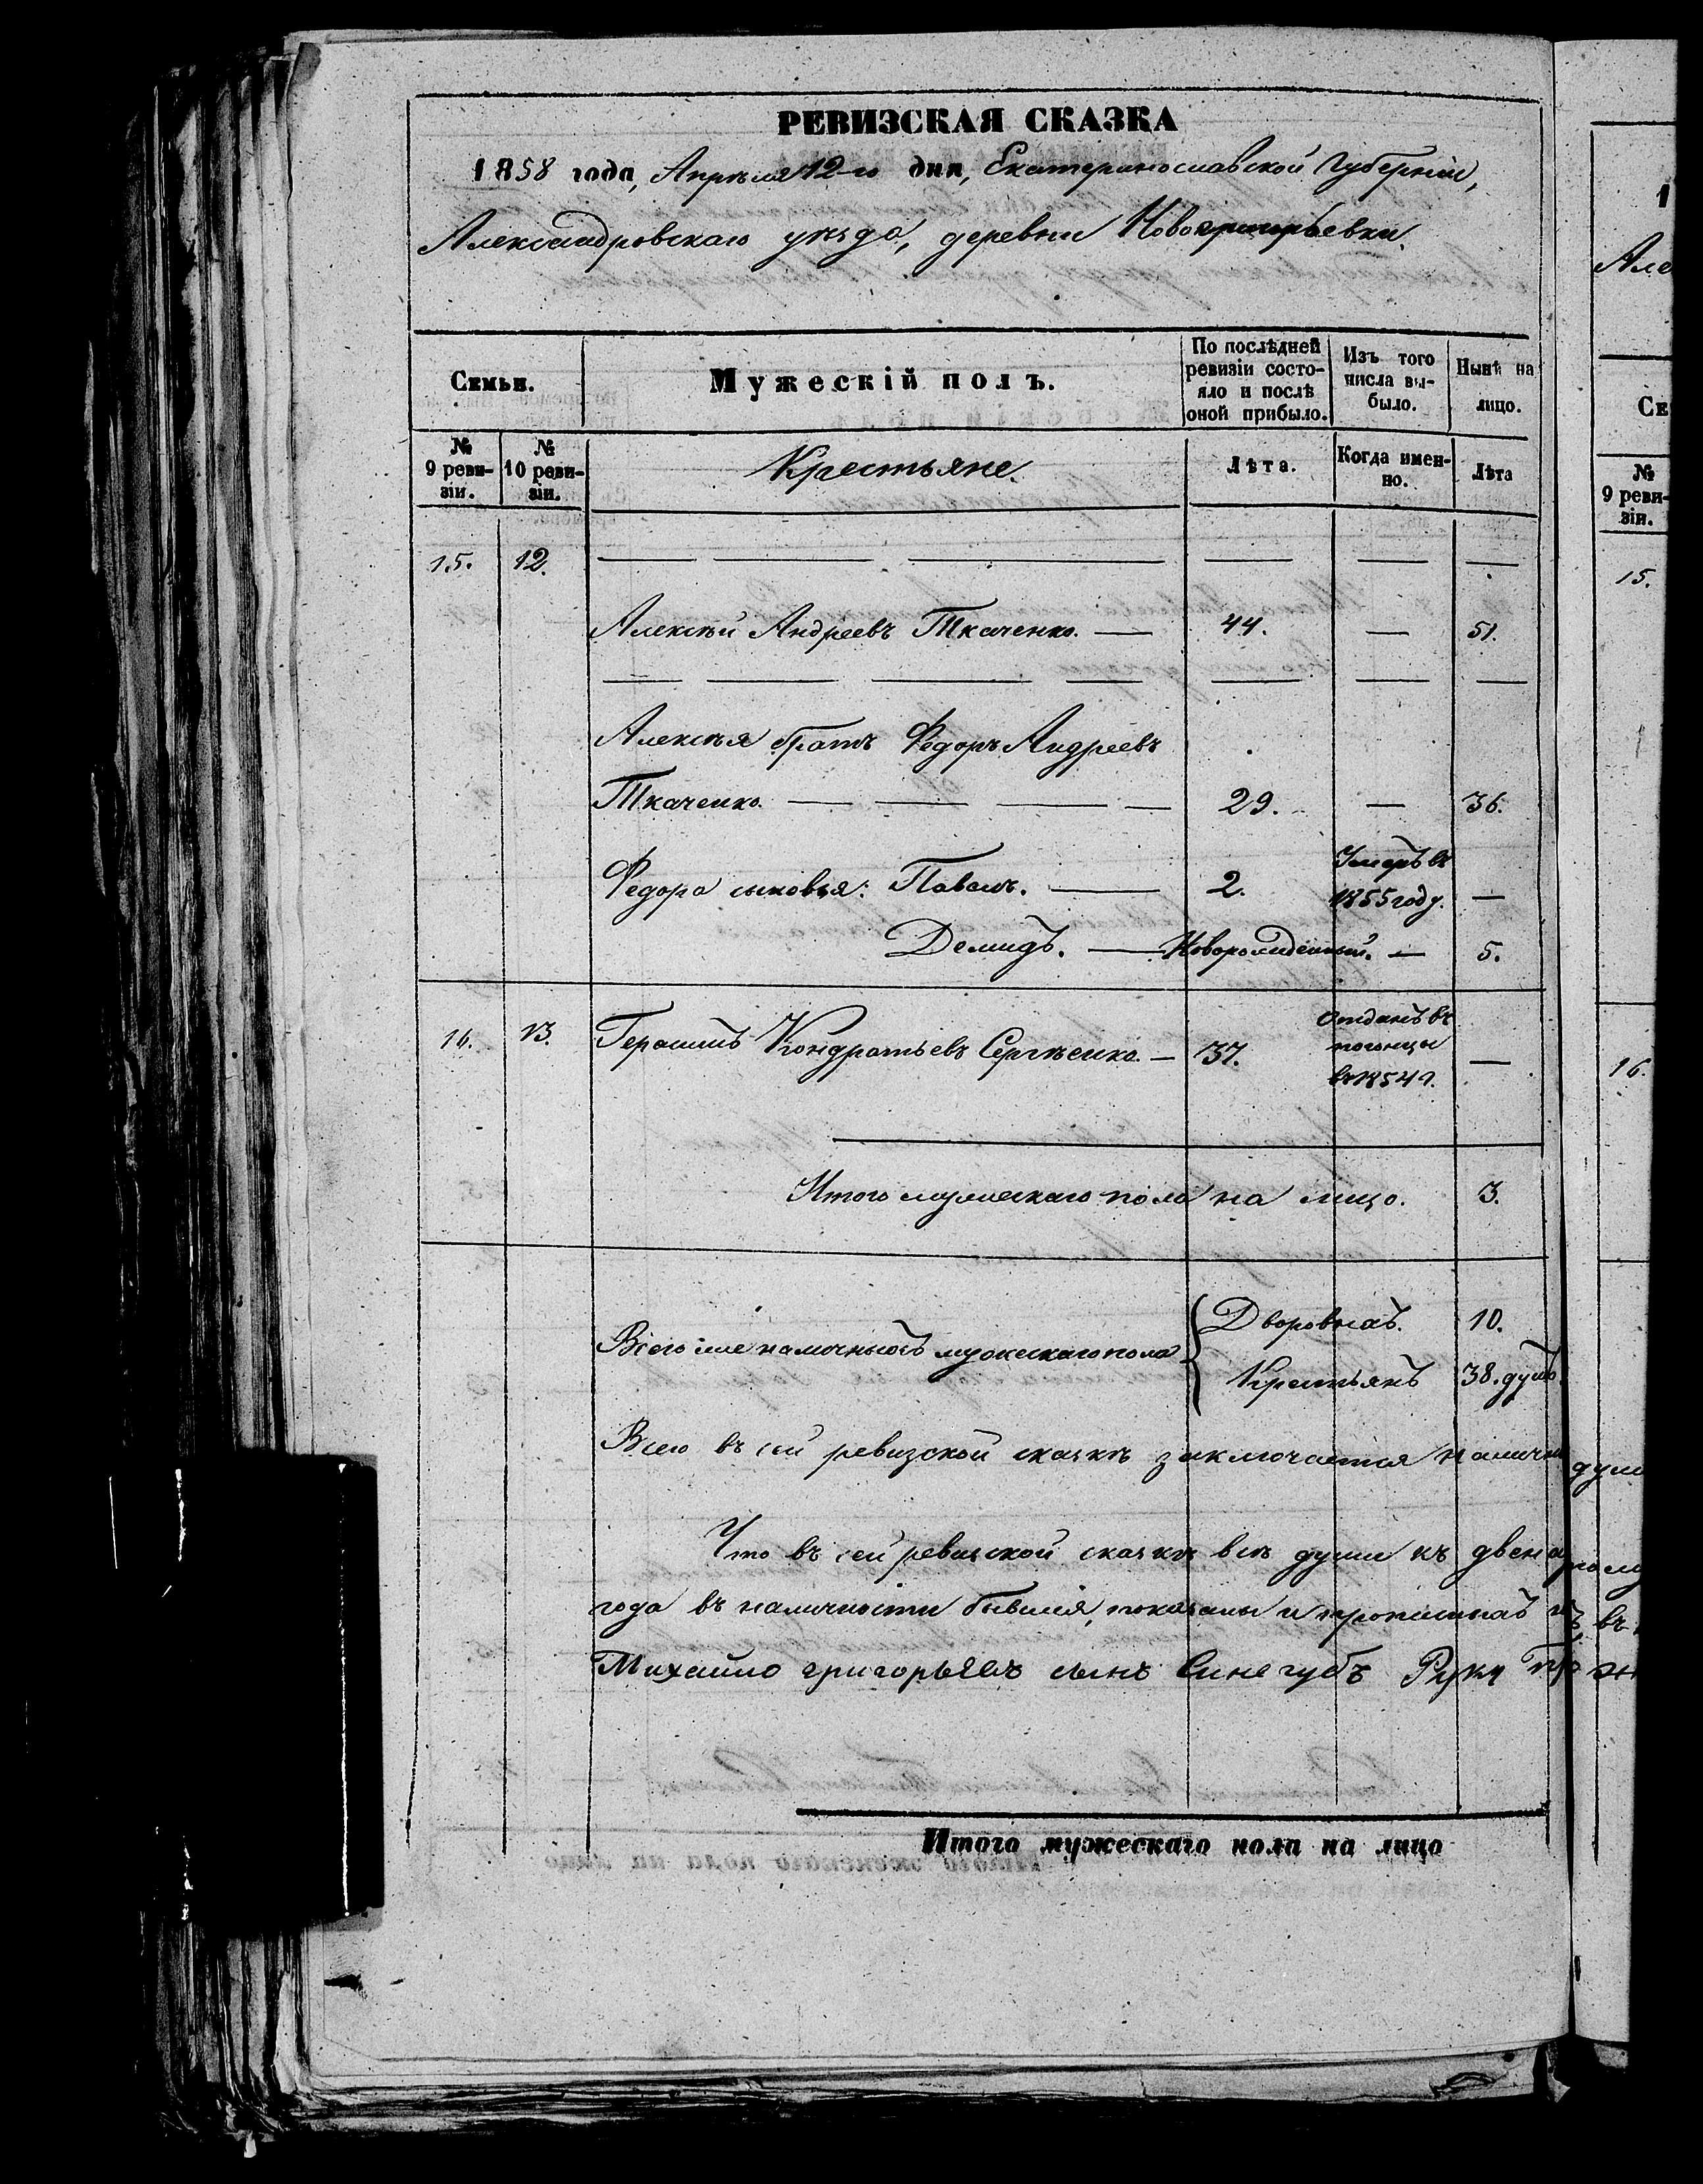 РЕВИЗСКАЯ СКАЗКА
1858 года, Апрѣля 12-го дня, Екатеринославской Губерніи,
Александровскаго уѣзда, деревни Новогригорьевки.
Семьи.
Мужескій полъ.
По послѣдней ревизіи состояло и послѣ оной прибыло.
Изъ того числа выбыло.
Нынѣ на лицо.
№ 9 ревизіи.
№ 10 ревизіи.
Крестьяне.
Лѣта.
Когда именно.
Лѣта
15. 12. — — — — — —
Алексѣй Андреевъ Ткаченко. — 44. — 51.
— — — — — — —
Алексѣя братъ Федоръ Андреевъ
Ткаченко. — — — — 29. — 36.
Федора сыновья: Павелъ. — 2. Умеръ въ 1855 году. —
Демидъ. — Новорожденный. — 5.
16. 13. Герасимъ Кондратьевъ Сергѣенко. — 37. Отданъ въ погонцы въ 1854 г. —
Итого мужескаго пола на лицо. 3.
Всего же наличныхъ мужескаго пола
Дворовыхъ. 10.
Крестьянъ 38. душъ.
Всего въ сей ревизской сказкѣ заключается налично
Что въ сей ревизской сказкѣ всѣ души къ двена
года въ наличности бывшія, показаны и прописныхъ н
Михайло григорьевъ сынъ Синегубъ Руку пр
Итого мужескаго пола на лицо
1
Але
Се
№
9 реви-
зіи.
15.
16.
душ
въ